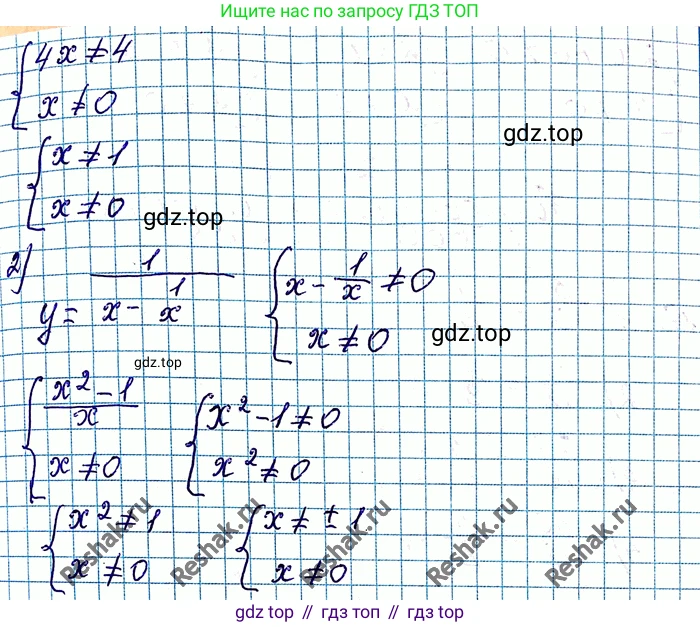 Ищите нас по запросу ГДЗ ТОП
{ 4x ≠ 4
x ≠ 0
gdz.top
{ x ≠ 1
x ≠ 0
gdz.top
2) y = 1 / (x - 1/x) { x - 1/x ≠ 0
x ≠ 0
gdz.top
gdz.top
{ (x² - 1)/x { x² - 1 ≠ 0
x ≠ 0 x² ≠ 0
{ x² ≠ 1 { x ≠ ± 1
x ≠ 0 x ≠ 0
Reshak.ru Reshak.ru Reshak.ru Reshak.ru Reshak.ru
gdz top // гдз топ // gdz top